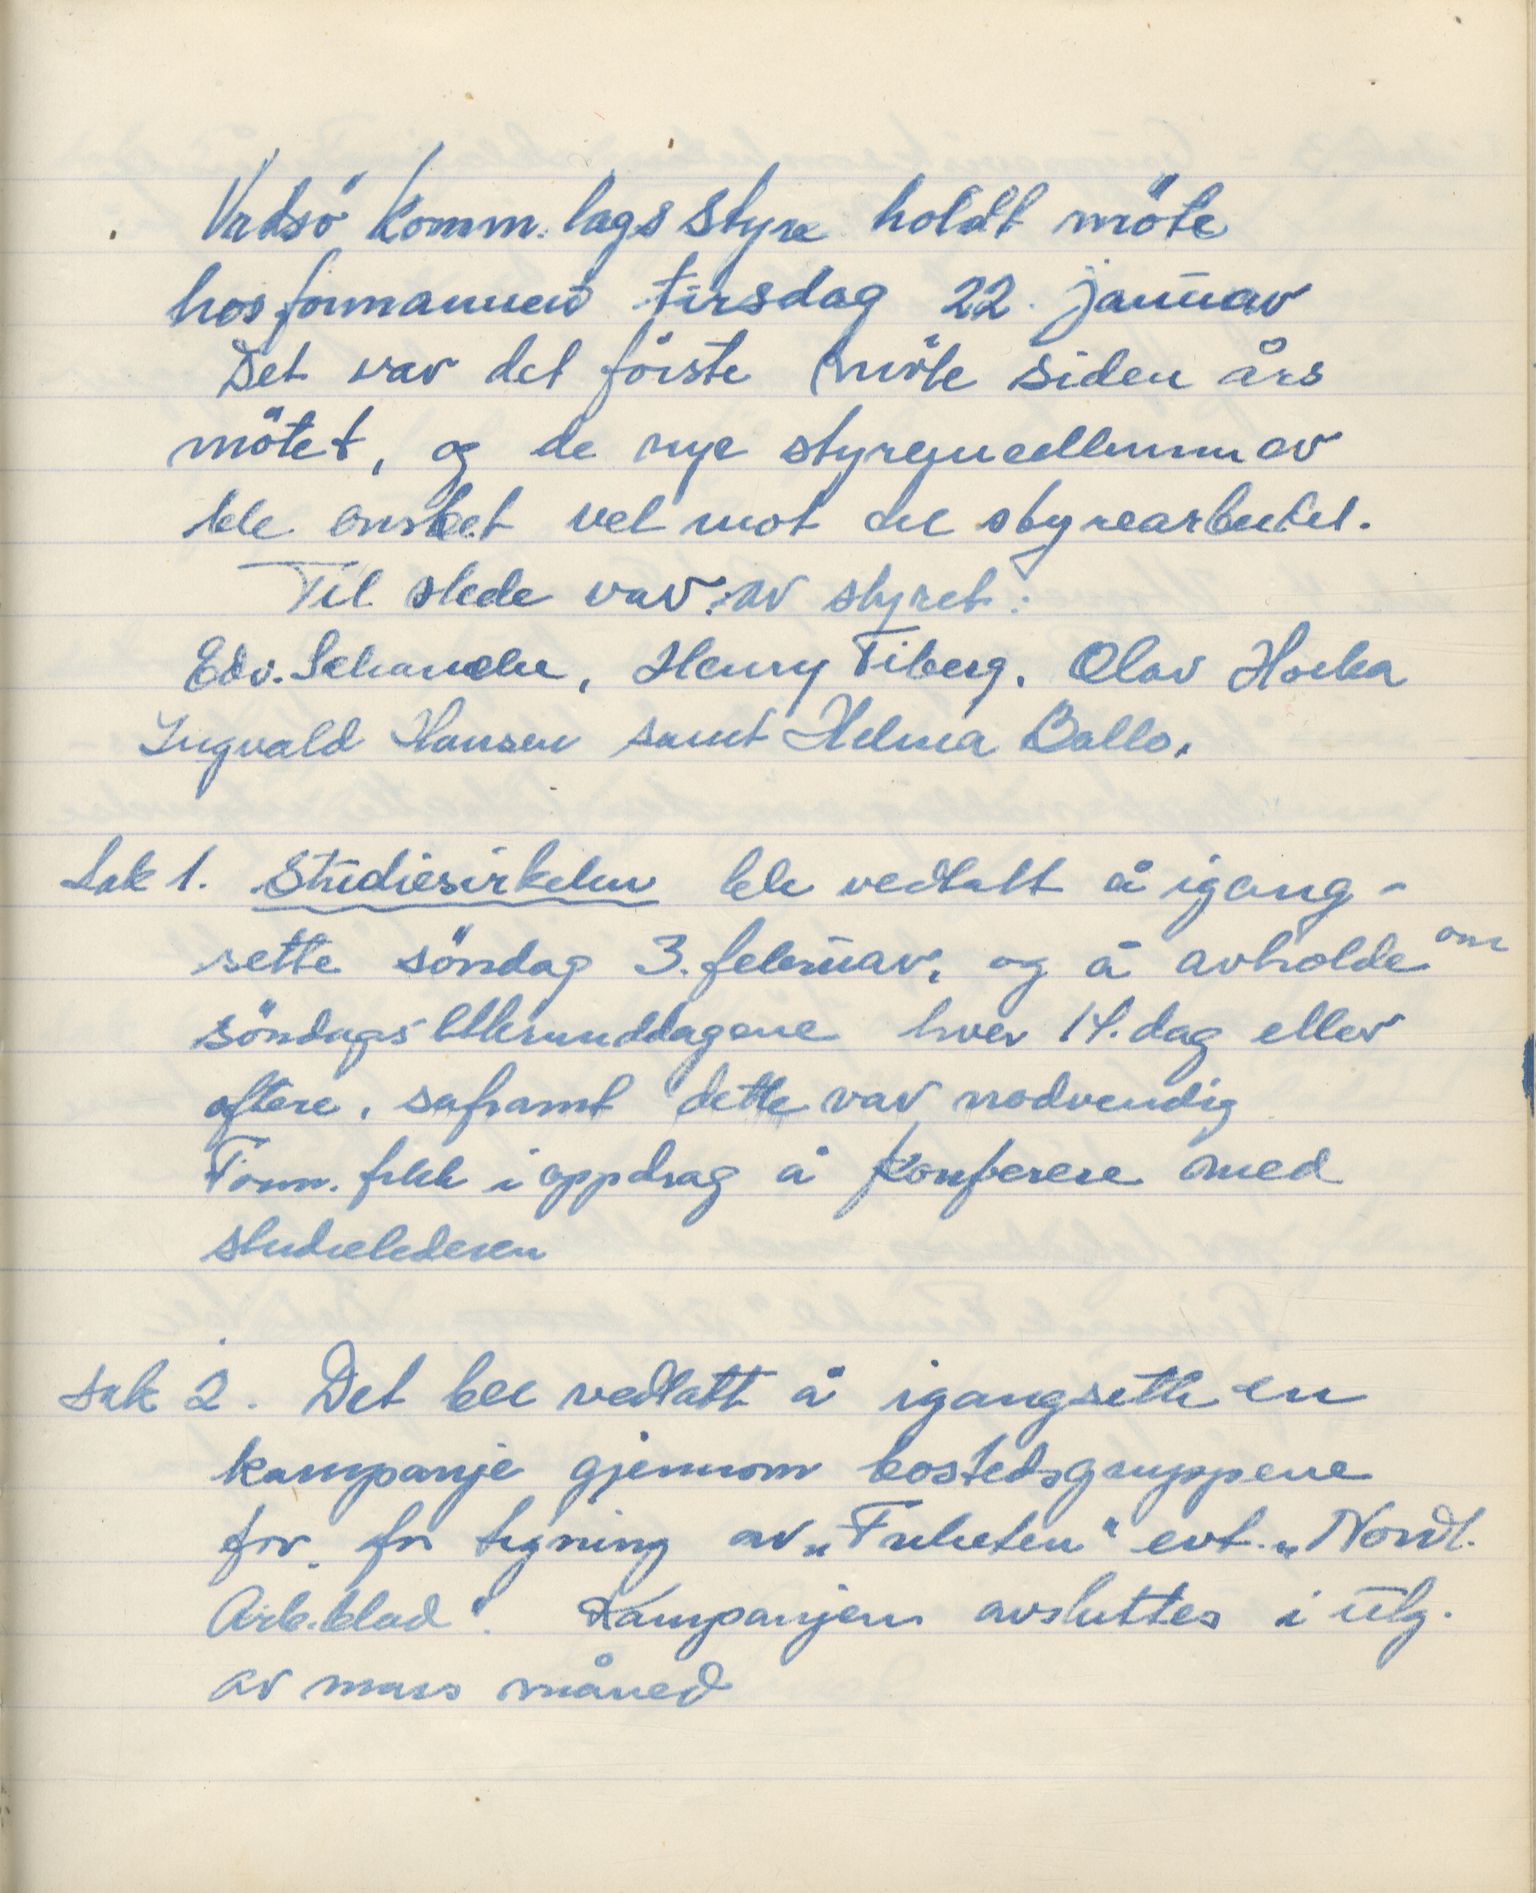 Vadsö Komm. lags styre holdt möte
hos formannen tirsdag 22. januar
Det var det förste möte siden års
mötet, og de nye styremedlemmer
ble önsket vel mot det styrearbeidet.
Til stede var av styret:
Edv. Schanche, Henry Fiberg, Olav Hocka
Ingvald Hansen samt Helma Ballo.
Sak 1. Studiesirkelen ble vedtatt å igang-
sette söndag 3. februar, og å avholde om
söndags ettermiddagene hver 14. dag eller
oftere, saframt dette var nodvendig
Form. fikk i oppdrag å konferere med
studielederen
sak 2. Det ble vedtatt å igangsette en
kampanje gjennom bostedsgruppene
for. for tegning av „Friheten" evt. „Nordl.
Arb.blad". Kampanjen avsluttes i utg.
av mars måned